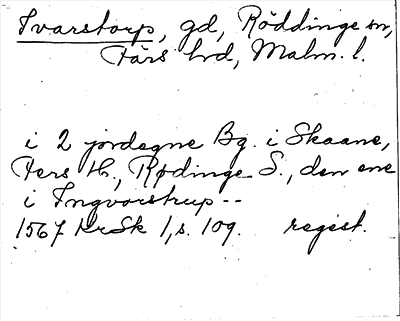 Ivarstorp, gd, Röddinge sn,
Färs hd, Malm. l.
i 2 jordegne Bg. i Skaane,
Fers H., Rødinge S., den ene
i Ingvorstrup--
1567 KrSk 1, s. 109. regist.